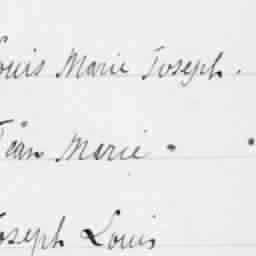 Louis Marie Joseph.
Jean Marie
Joseph Louis